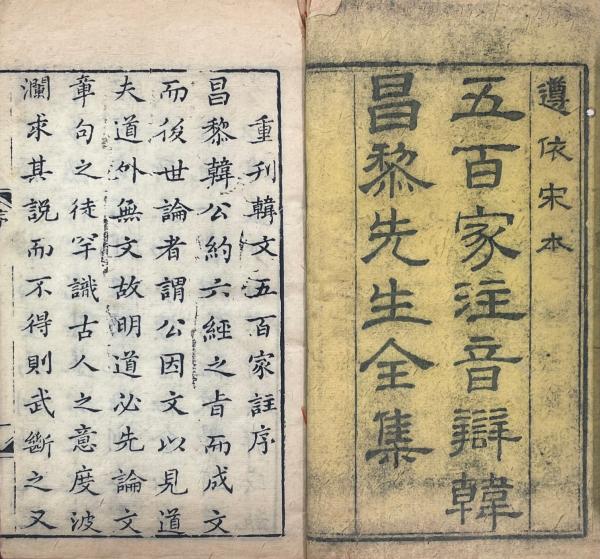 遵依宋本
五百家注音辯韓
昌黎先生全集
重刊韓文五百家註序
昌黎韓公約六經之旨而成文
而後世論者謂公因文以見道
夫道外無文故明道必先論文
章句之徒罕識古人之意度波
瀾求其說而不得則武斷之又